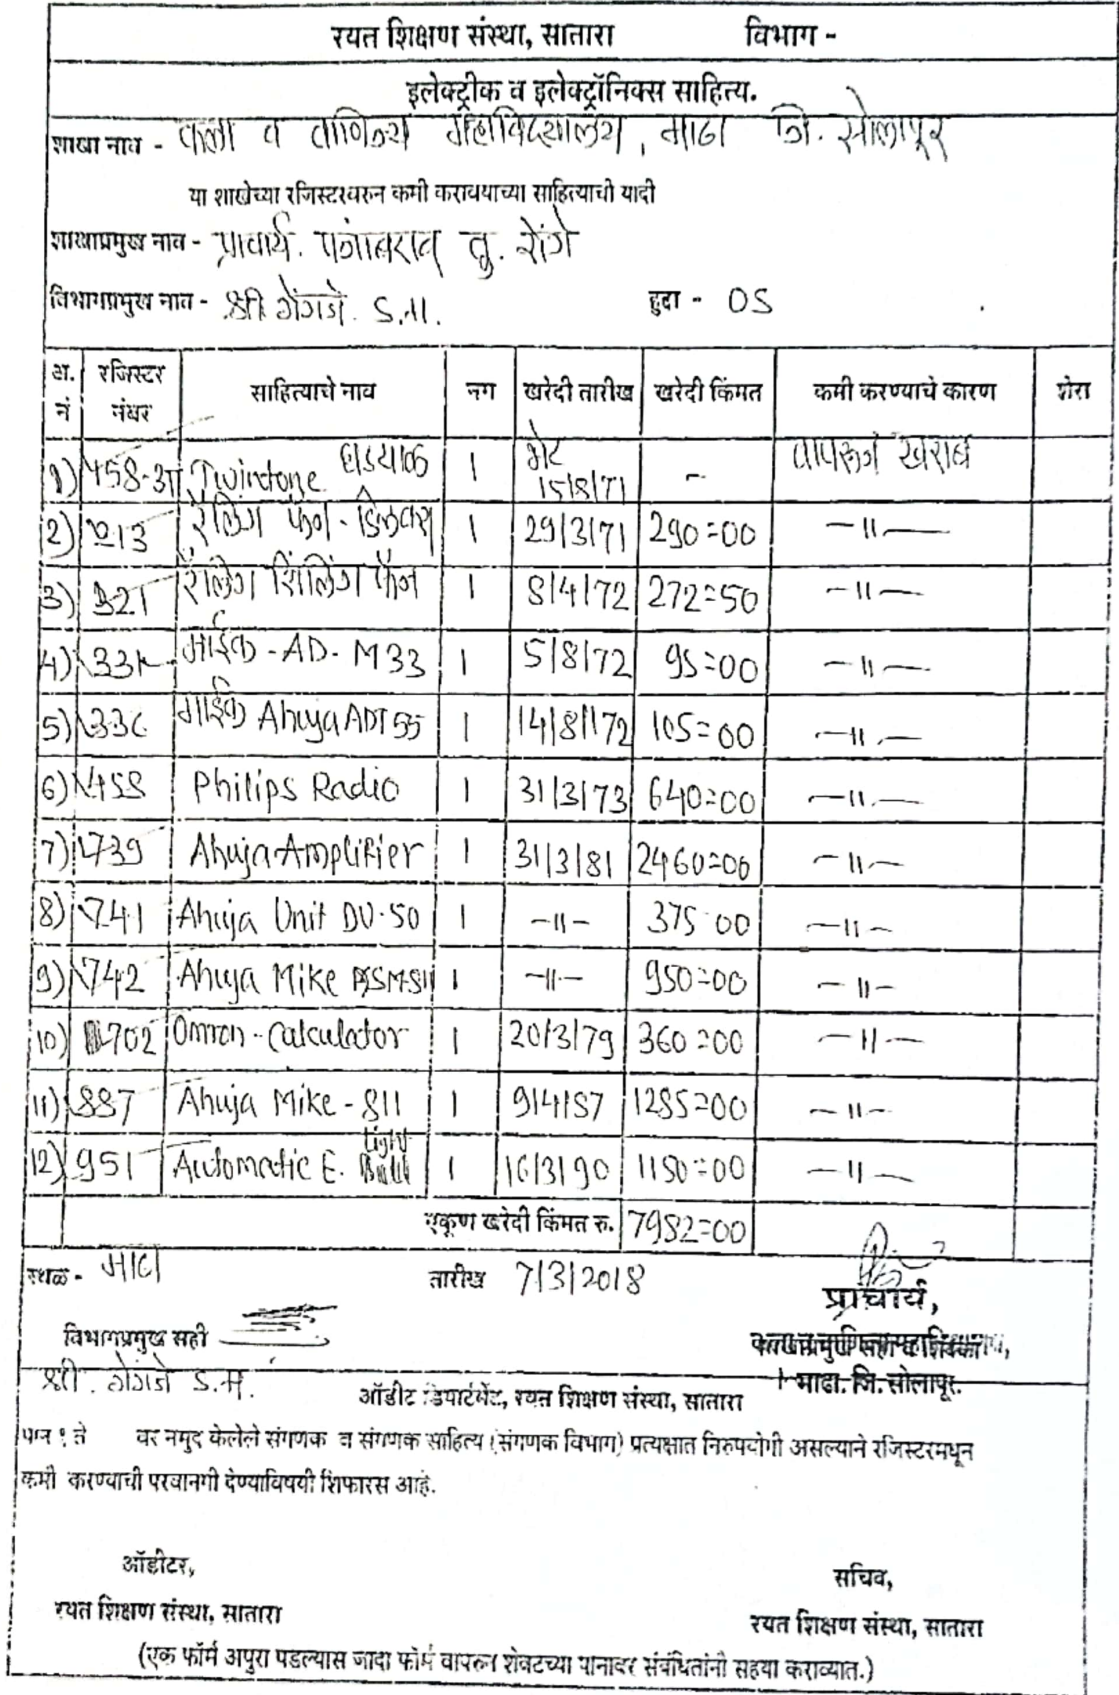 रयत शिक्षण संस्था, सातारा विभाग -
इलेक्ट्रीक व इलेक्ट्रॉनिक्स साहित्य.
शाखा नाव - कला व वाणिज्य महाविद्यालय, माढा जि. सोलापूर
या शाखेच्या रजिस्टरवरुन कमी करावयाच्या साहित्याची यादी
शाखाप्रमुख नाव - प्राचार्य. पंजाबराव तु. रोंगे
विभागप्रमुख नाव - श्री गेंगजे. S.M. हुद्दा - OS
अ. नं रजिस्टर नंबर साहित्याचे नाव नग खरेदी तारीख खरेदी किंमत कमी करण्याचे कारण शेरा
1) 458-अ Twintone घड्याळ 1 भेट 15/8/71 - वापरून खराब
2) 213 रॅलिंग फॅन - डिलक्स 1 29/3/71 290=00 -11-
3) 321 रॅलिंग सिलिंग फॅन 1 8/4/72 272=50 -11-
4) 331 माईक - AD- M33 1 5/8/72 95=00 -11-
5) 336 माईक Ahuja ADT 55 1 14/8/172 105=00 -11-
6) 458 Philips Radio 1 31/3/73 640=00 -11-
7) 739 Ahuja Amplifier 1 31/3/81 2460=00 -11-
8) 741 Ahuja Unit DU-50 1 -11- 375=00 -11-
9) 742 Ahuja Mike 1 -11- 950=00 -11-
10) 702 Omron - Calculator 1 20/3/79 360=00 -11-
11) 887 Ahuja Mike - 811 1 9/4/87 1285=00 -11-
12) 951 Automatic E. Light 1 16/3/90 1150=00 -11-
एकूण खरेदी किंमत रु. 7982=00
स्थळ - माढा तारीख 7/3/2018
प्राचार्य,
विभागप्रमुख सही
श्री. गेंगजे S.M. माढा. जि. सोलापूर.
ऑडीट डिपार्टमेंट, रयत शिक्षण संस्था, सातारा
पान १ ते वर नमुद केलेले संगणक व संगणक साहित्य (संगणक विभाग) प्रत्यक्षात निरुपयोगी असल्याने रजिस्टरमधून
कमी करण्याची परवानगी देण्याविषयी शिफारस आहे.
ऑडीटर, सचिव,
रयत शिक्षण संस्था, सातारा रयत शिक्षण संस्था, सातारा
(एक फॉर्म अपुरा पडल्यास जादा फॉर्म वापरुन शेवटच्या पानावर संबंधितांनी सहया कराव्यात.)